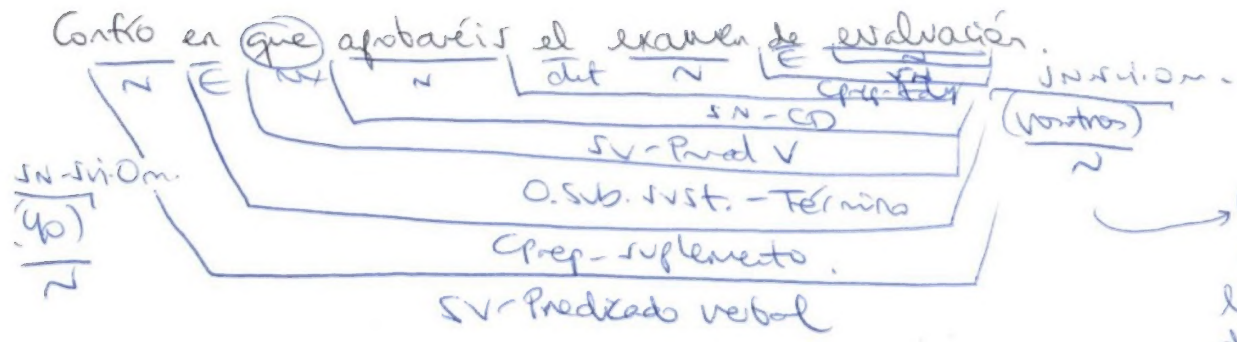 Confío en que aprobaréis el examen de evaluación.
N E NX N det N E N
SN-Suj.Om.
Cprep-Ady
SN-CD
(vosotros)
SV-Pred V
N
SN-Suj.Om.
O.Sub.sust.-Término
(Yo)
Cprep-suplemento.
N
SV-Predicado verbal